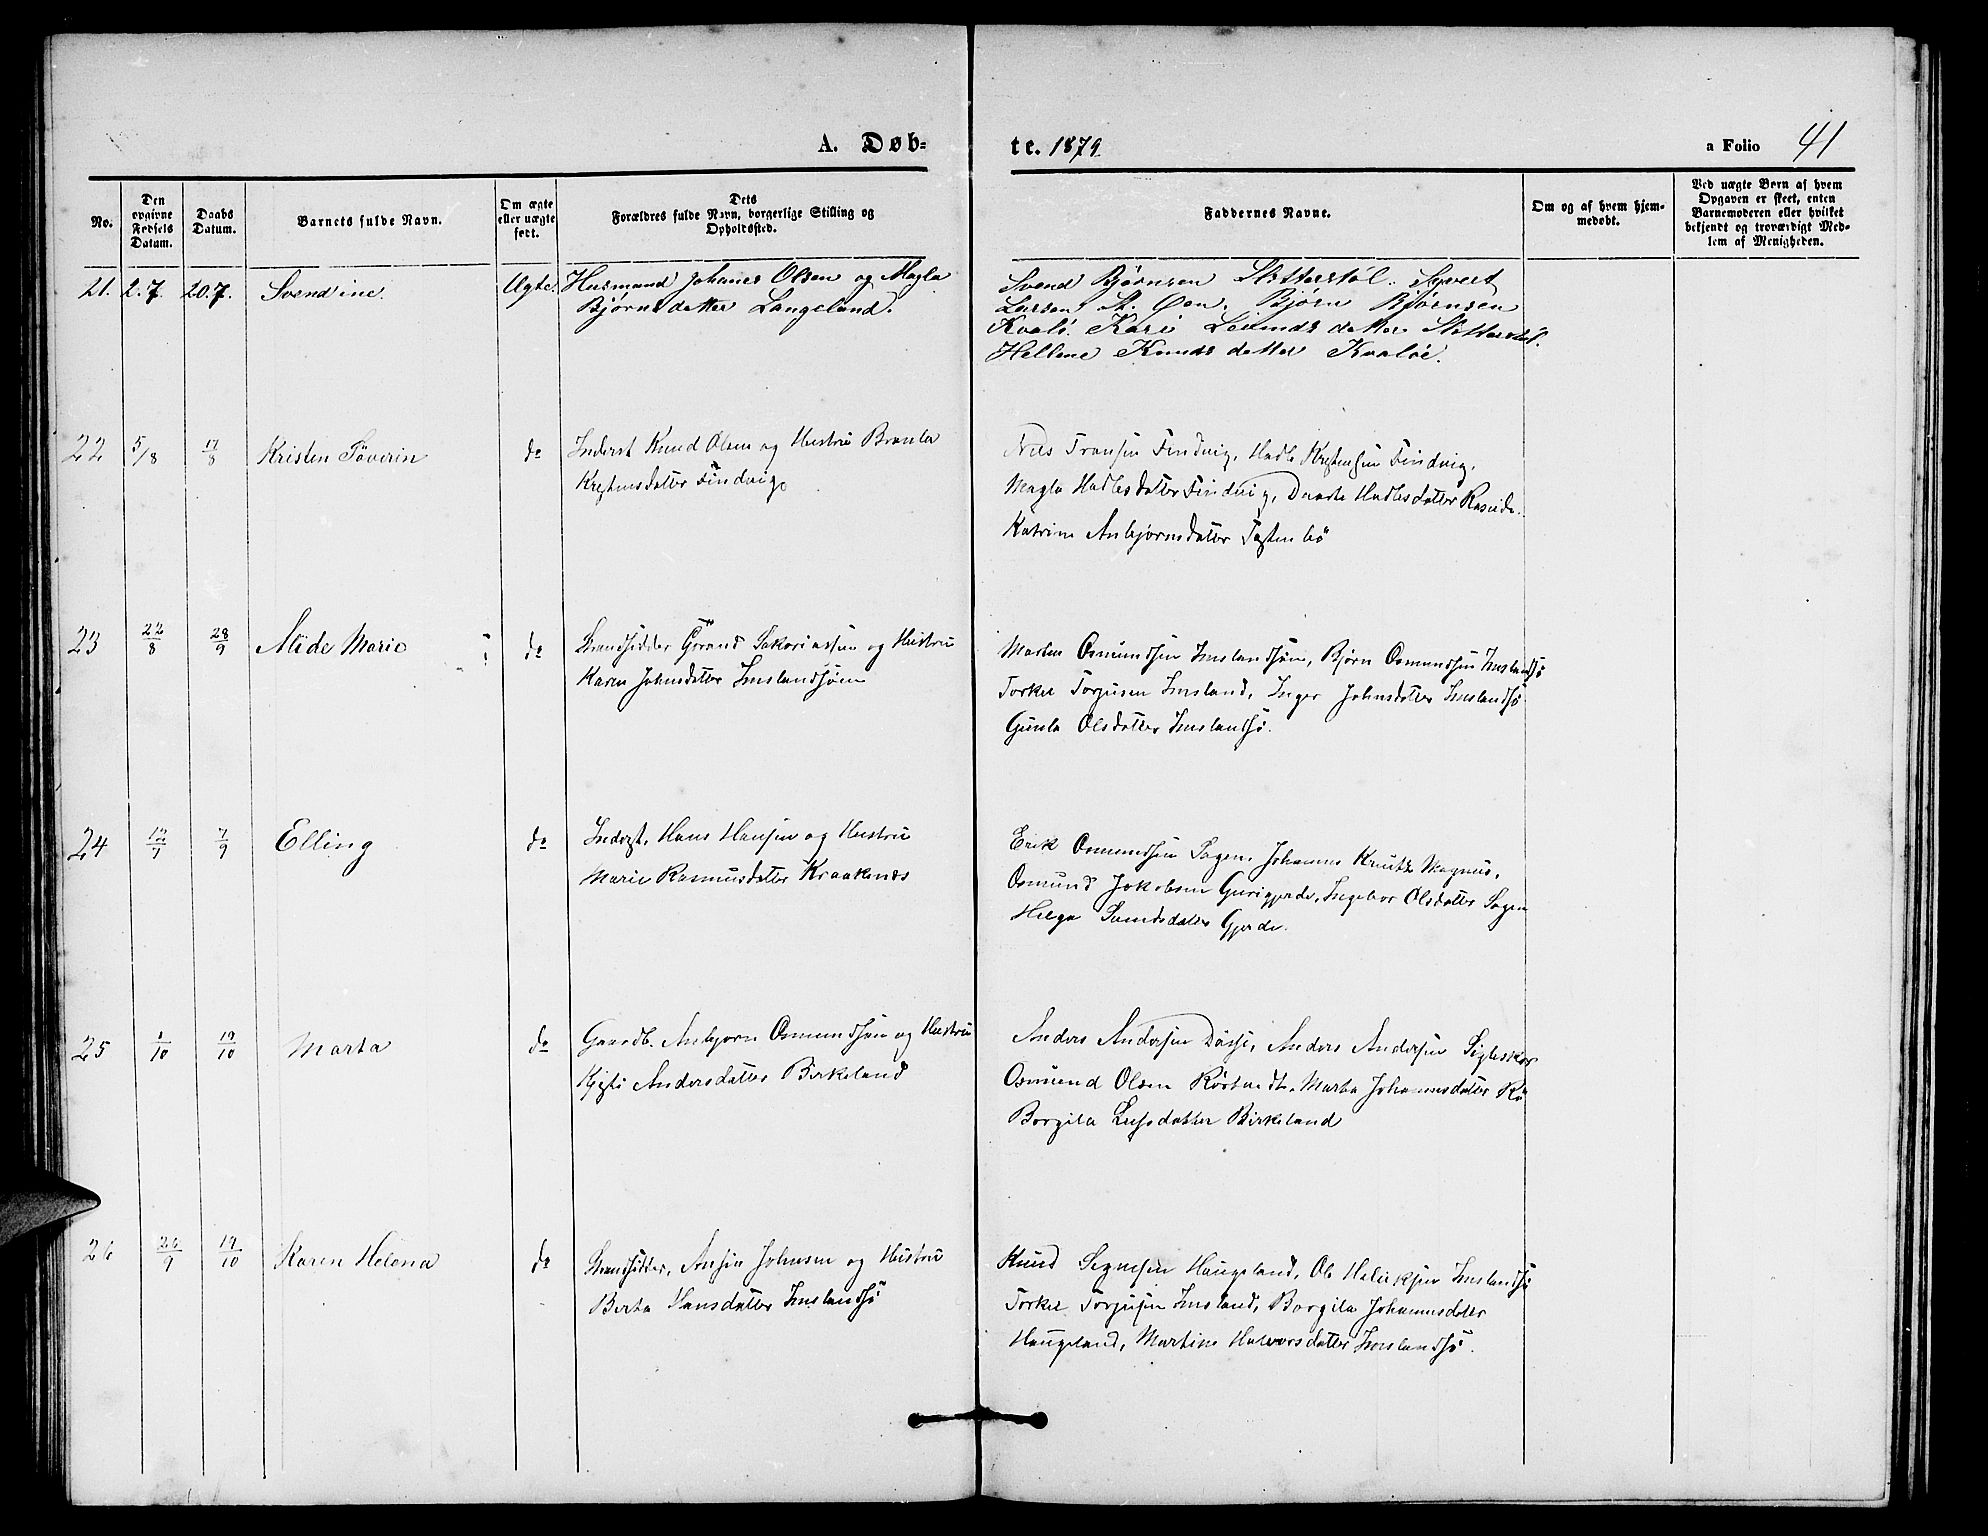 A. Døb-
te. 1879
a Folio 41
No.
Den opgivne Fødsels Datum.
Daabs Datum.
Barnets fulde Navn.
Om ægte eller uægte født.
Dets Forældres fulde Navn, borgerlige Stilling og Opholdssted.
Faddernes Navne.
Om og af hvem hjemmedøbt.
Ved uægte Børn af hvem Opgaven er skeet, enten Barnemoderen eller hvilket bekjendt og troværdigt Medlem af Menigheden.
21. 2.7. 20.7. Svendine. Ægte. Husmand Johanes Olsen og Magla
Bjørnsdatter Langeland.
Svend Bjørnsen Slottestøl. Syvert
Larsen St. Øen. Bjørn Bjørnsen
Kvalö. Kari datter
Hellene Knudsdatter Kvaløe.
22 5/8 17/8 Kristen Söverin do Inderst Knud Olsen og Hustru Brønla
Kristensdatter Findvig
Nils Findvig, Hadle Kristensen Findvig,
Magla Hadlesdatter Findvig, Hadlesdatter
Katrine Anbjørnsdatter
23 22/8 28/9 Alide Marie do Strandsidder Görand Sakariassen og Hustru
Karen Johnsdatter Imslandsjöen
Marten Osmundsen Imslandsjöen, Björn Osmundsen Imslandsjö
Torkel Torjusen Imsland, Inger Johnsdatter Imslandsjö
Gunla Olsdatter Imslandsjö.
24 7/9 Elling do Inderst. Hans Hansen og Hustru
Marie Rasmusdatter Kraakenes
Erik Osmundsen Sagen, Johannes Magnus,
Osmund Jakobsen Gurigjerde, Ingebor Olsdatter Sagen
Helga datter Gjerde.
25 1/10 19/10 Marta do Gaardb. Anbjørn Osmundsen og Hustru
Kjisti Andersdatter Birkeland
Anders Andersen Anders Andersen
Osmund Olsen Marta Johannesdatter Rö
Borgila datter Birkeland
26 26/9 19/10 Karen Helena do Strandsidder, Johnsen og Hustru
Berta Hansdatter Imslandsjö
Knud Haugeland, Ole Imslandsjö
Torkel Torjusen Imsland, Borgila Johannesdatter
Haugeland, Martine Halvorsdatter Imslandsjö.